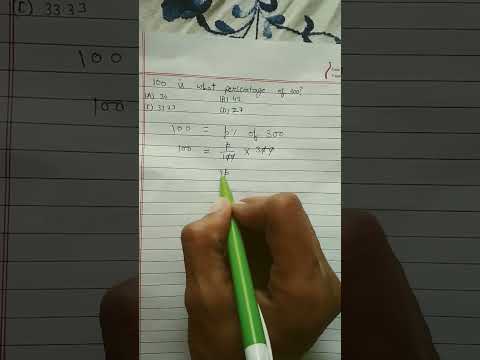 100 is what percentage of 300?
(A) 30 (B) 42
(C) 33.33 (D) 27
100 = p% of 300
100 = p/100 × 300